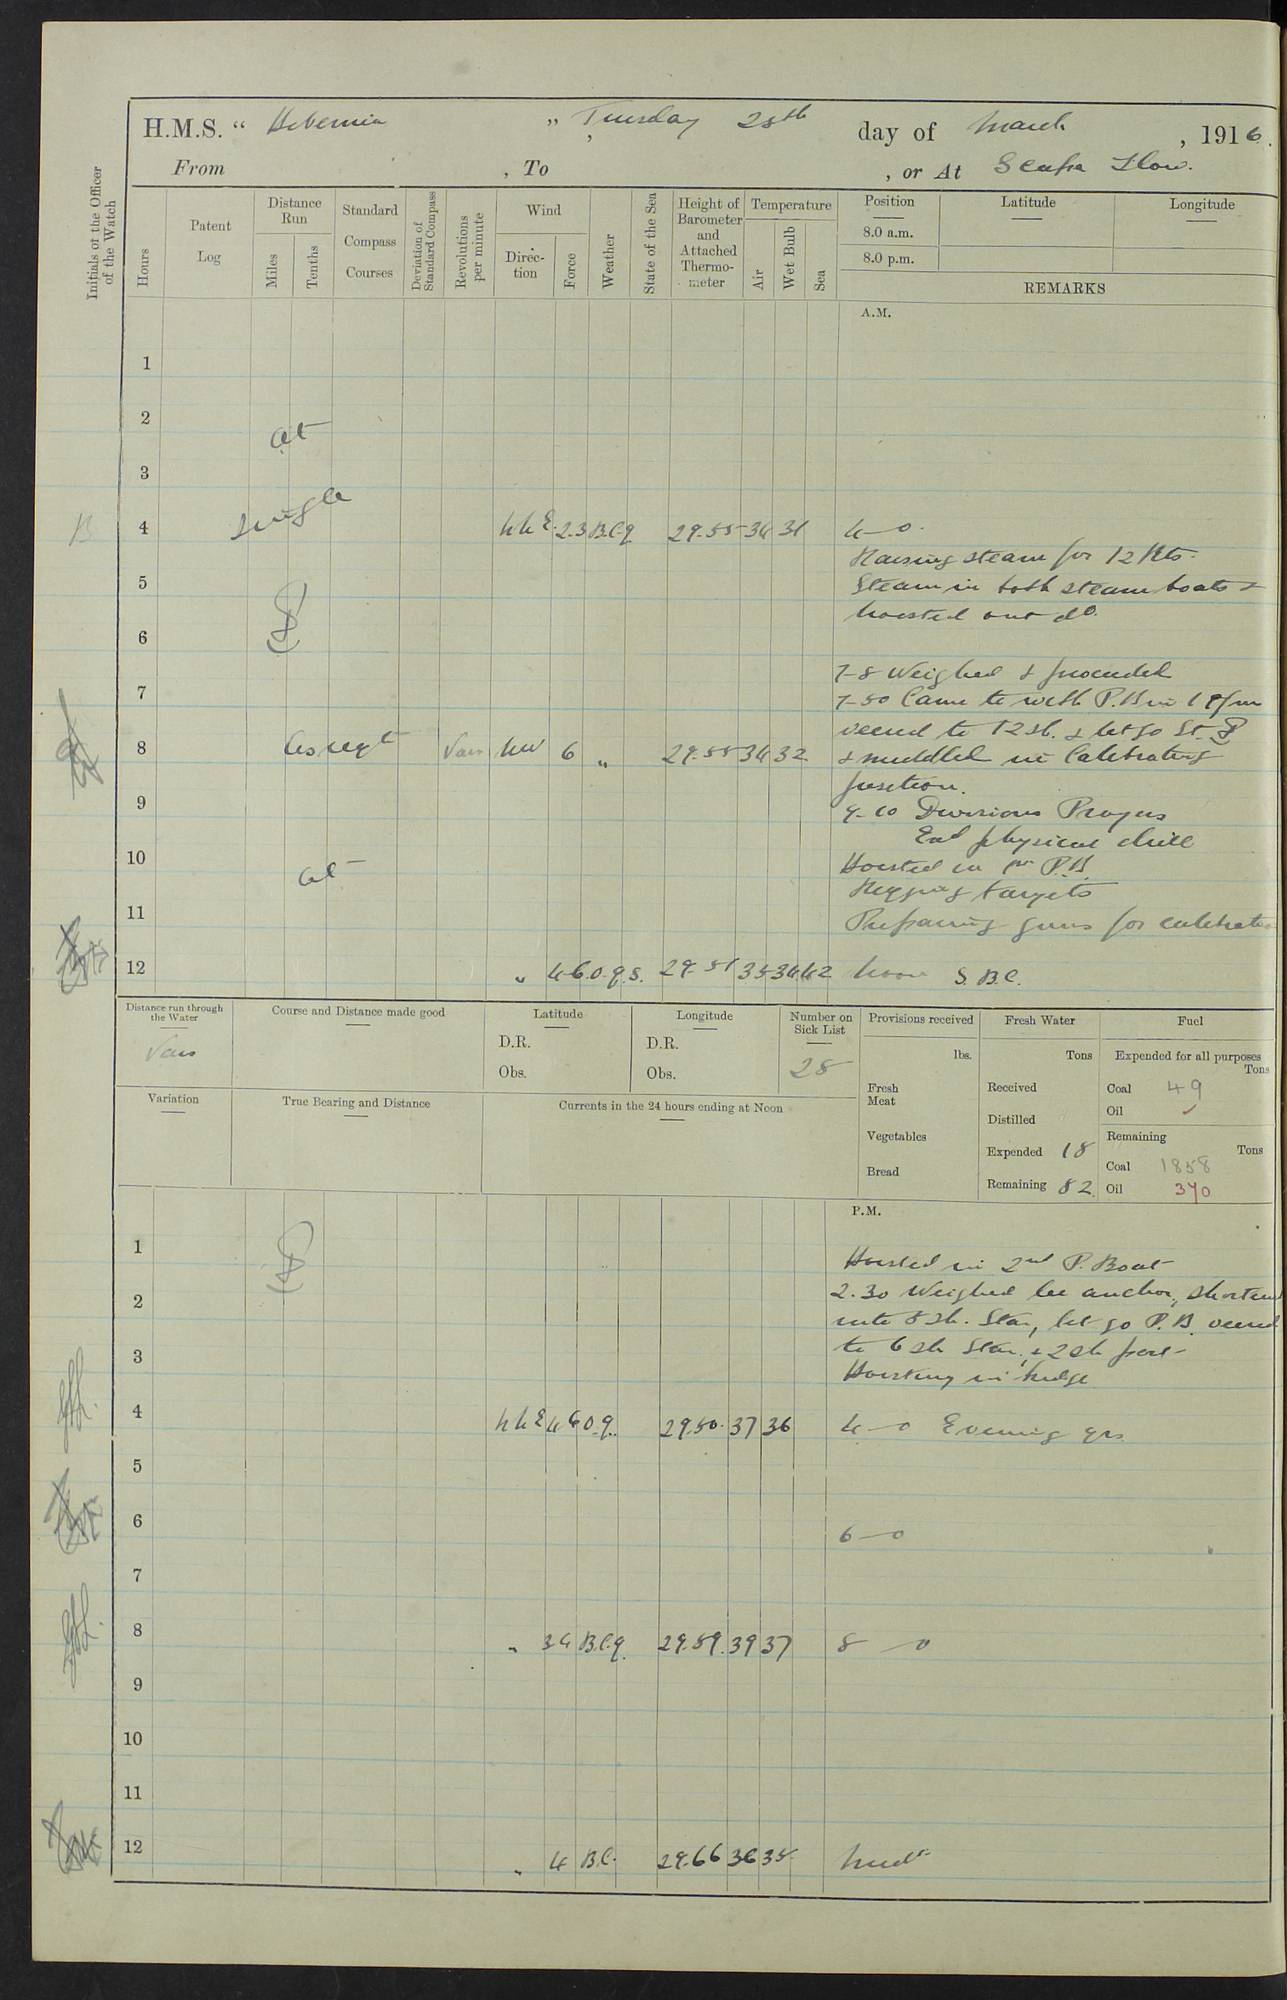 H.M.S. " Hibernia " Tuesday 28th day of March , 1916.
From , To , or At Scapa Flow.
Initials of the Officer of the Watch
Hours
Patent Log
Distance Run
Miles
Tenths
Standard Compass Courses
Deviation of Standard Compass
Revolutions per minute
Wind
Direction
Force
Weather
State of the Sea
Height of Barometer and Attached Thermometer
Temperature
Air
Wet Bulb
Sea
Position
Latitude
Longitude
8.0 a.m.
8.0 p.m.
REMARKS
A.M.
1
2
At
3
Single
4 NNE 2.3 B.C.q 29.55 34 31 4-0
Raising steam for 12 Kts.
5 Steam in both steam boats &
hoisted out do.
6
7-8 Weighed & proceeded
7 7-50 Came to with P.B in
veered to 12 sh. & let go St.
8 As reqt Vars NW 6 " 29.55 34 32 & middled in Calibrating
position.
9 9-10 Divisions Prayers
End physical drill
10 Hoisted in P.B.
At Rigging targets
11 Preparing guns for calibration
12 " 4.6 O.q.s. 29.51 35 34 42 Noon S.B.C.
Distance run through the Water
Vars
Course and Distance made good
Latitude
D.R.
Obs.
Longitude
D.R.
Obs.
Number on Sick List
28
Provisions received
lbs.
Fresh Meat
Vegetables
Bread
Fresh Water
Tons
Received
Distilled
Expended 18
Remaining 82
Fuel
Expended for all purposes
Tons
Coal 49
Oil
Remaining
Tons
Coal 1858
Oil 370
Variation
True Bearing and Distance
Currents in the 24 hours ending at Noon
P.M.
1 Hoisted in 2nd P. Boat
2 2.30 Weighed lee anchor, shortened
into 5 sh. Star, let go P.B. veered
3 to 6 sh Star, & 2 sh port
Hoisting in kedge
4 NNE 4 6 O.q. 29.50 37 36 4-0 Evening qrs
5
6 6-0
7
8 " 34 B.C.q. 29.59 39 37 8-0
9
10
11
12 " 4 B.C. 29.66 36 35 Midt